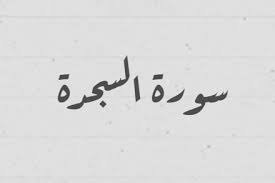 سورة السجدة